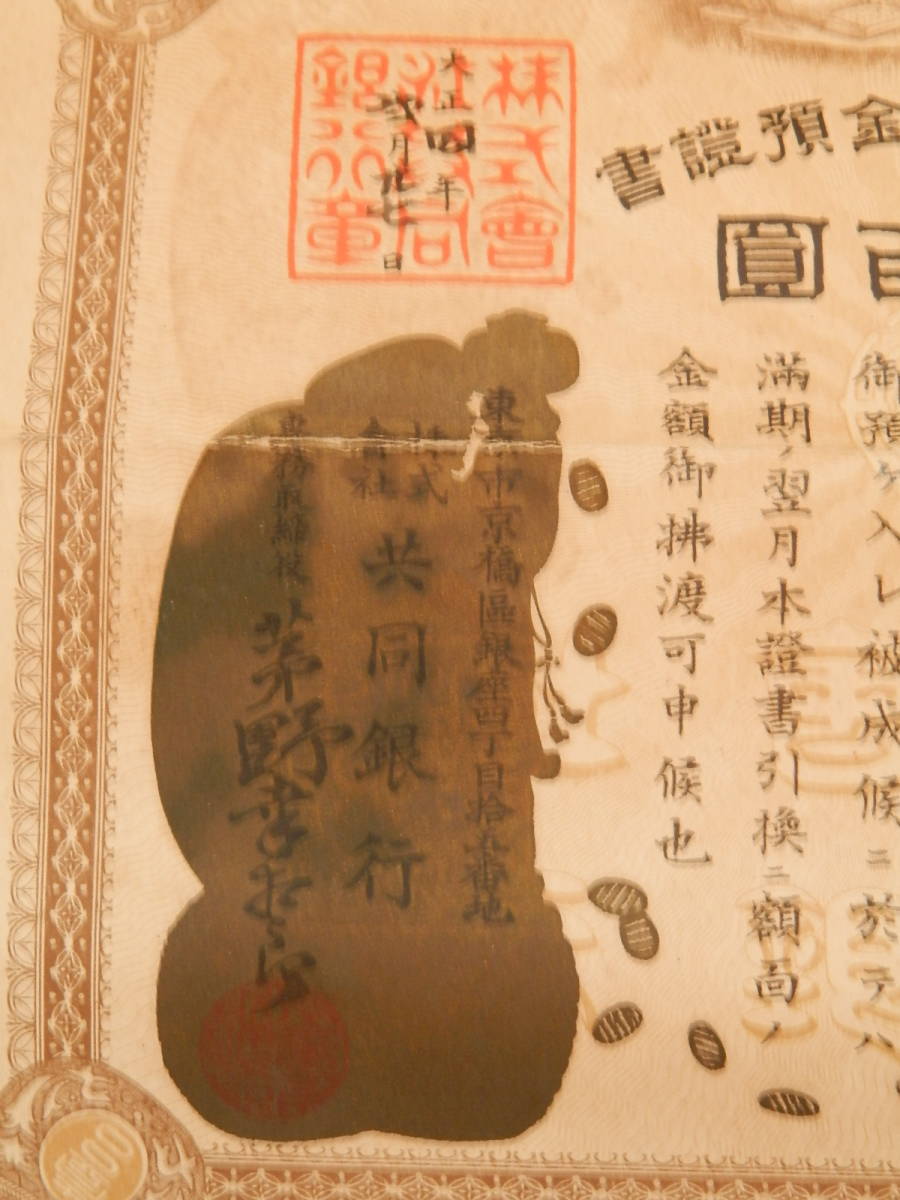 金預證書
百圓
御預ケ入レ被成候ニ於テハ
滿期ノ翌月本證書引換ニ額面ノ
金額御拂渡可申候也
大正四年
貳月廿七日
株式會
社共同
銀行章
東京市京橋區銀座四丁目拾五番地
株式會社
共同銀行
專務取締役
茅野幸